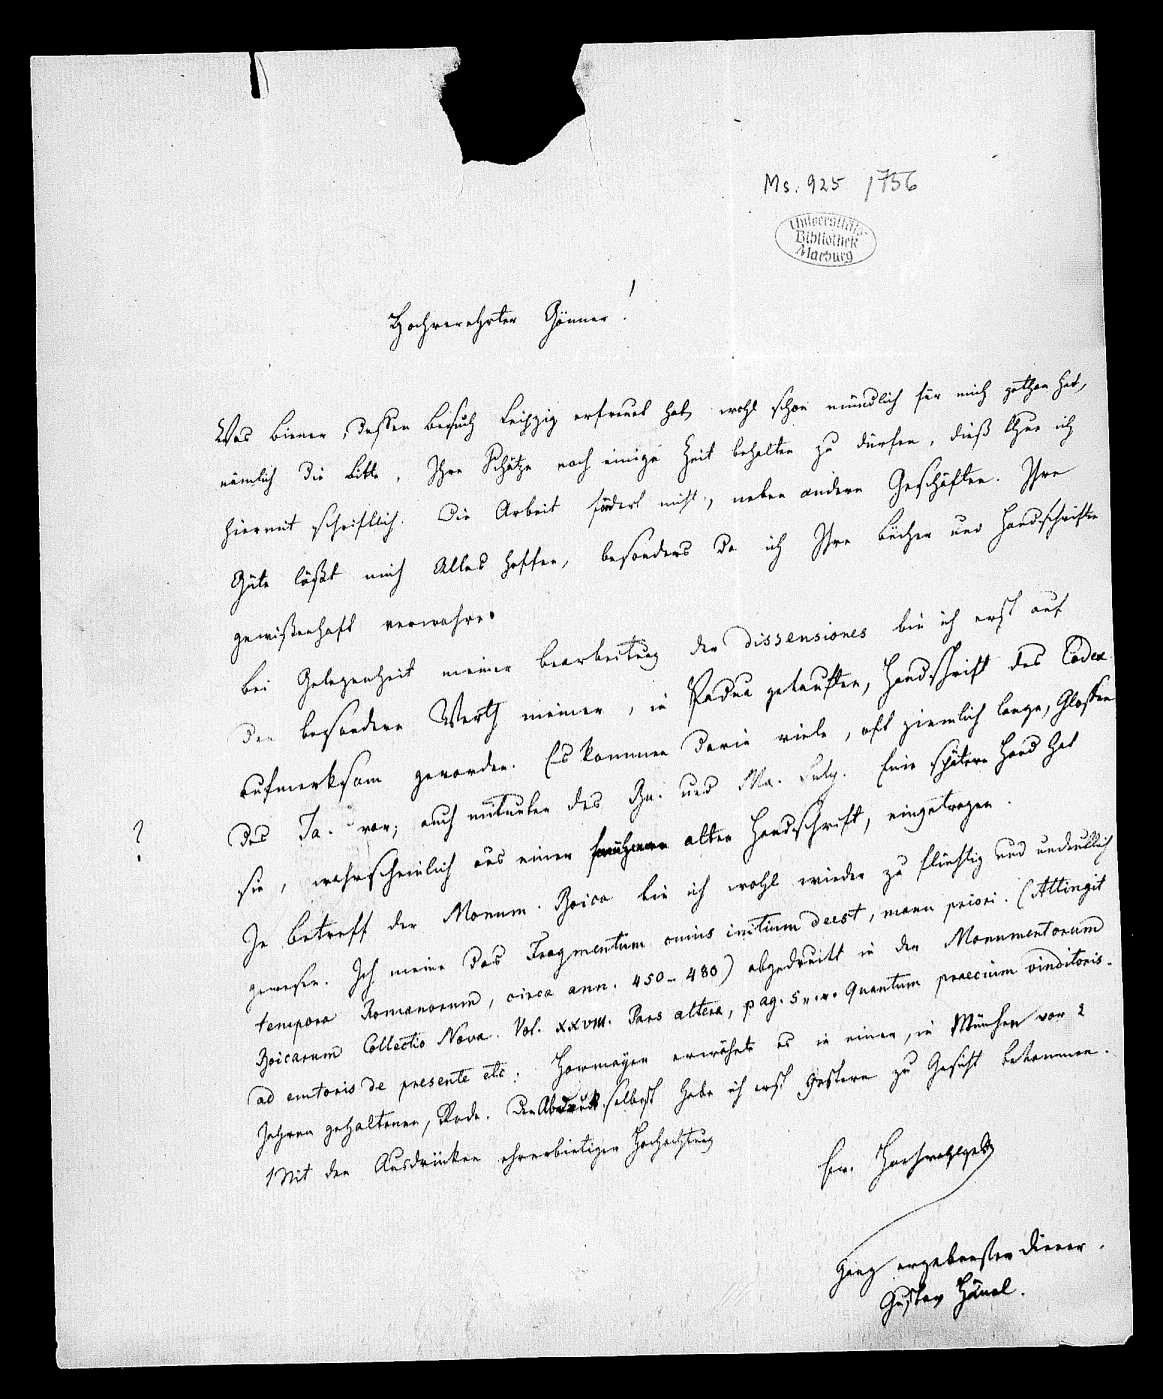 Ms. 925 1756
Universitäts-
Bibliothek
Marburg
Hochverehrter Gönner!
Was Biener, dessen Besuch Leipzig erfreut hat, wohl schon mündlich für mich gethan hat,
nämlich die Bitte, Ihre Schätze noch einige Zeit behalten zu dürfen, dieß thue ich
hiermit schriftlich. Die Arbeit fördert nicht, neben andern Geschäften. Ihre
Güte läßt mich Alles hoffen, besonders da ich Ihre Bücher und Handschriften
gewißenhaft verwahre.
Bei Gelegenheit meiner Bearbeitung der dissensiones bin ich erst auf
den besondern Werth meiner, in Padua gekauften, Handschrift des Codex
aufmerksam geworden. Es kommen darin viele, oft ziemlich lange, Glossen
des Ja. vor, auch mitunter des Bu. und Ma. Eine spätere Hand hat
?
sie, wahrscheinlich aus einer alten Handschrift, eingetragen.
In Betreff der Monum. Boica bin ich wohl wieder zu flüchtig und undeutlich
gewesen. Ich meine das Fragmentum cuius initium deest, manu priori. (Attingit
tempora Romanorum, circa ann. 450–480) abgedruckt in den Monumentorum
Boicarum Collectio Nova. Vol. XXVIII. Pars altera, pag. Quantum praecium vinditoris
ad emtoris de presente etc. Hormayer erwähnte es in einer, in München vor 2
Jahren gehaltenen, Rede. Den Abdruck selbst habe ich erst gestern zu Gesicht bekommen.
Mit den Ausdrücken ehrerbietigen Hochachtung
Ew. Hochwohlgeb
ganz ergebenster Diener.
Gustav Hänel.